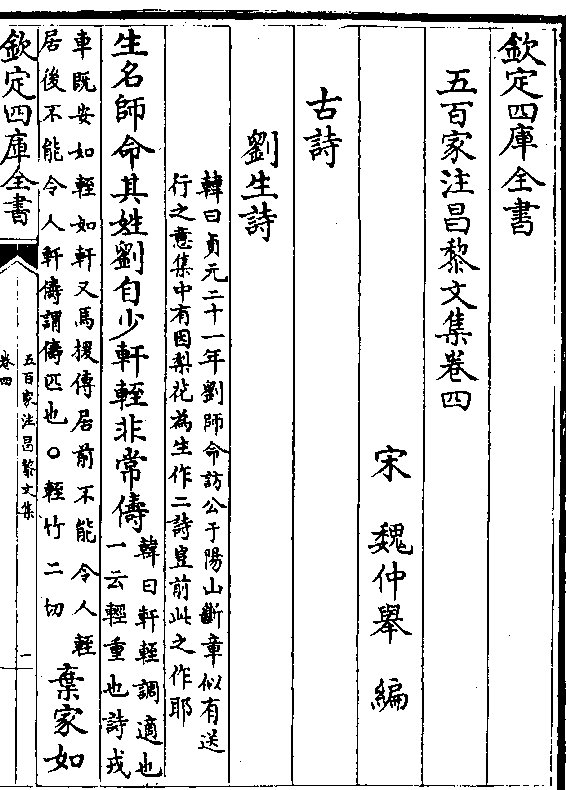 欽定四庫全書
五百家注昌黎文集卷四
宋 魏仲舉 編
古詩
劉生詩
韓曰貞元二十一年劉師命訪公于陽山斷章似有送
行之意集中有因梨花為生作二詩豈前此之作耶
生名師命其姓劉自少軒輊非常儔
韓曰軒輊調適也
一云輕重也詩戎
車既安如輊如軒又馬援傳居前不能令人輊
居後不能令人軒儔謂儔匹也○輊竹二切
棄家如
欽定四庫全書
五百家注昌黎文集
卷四
一